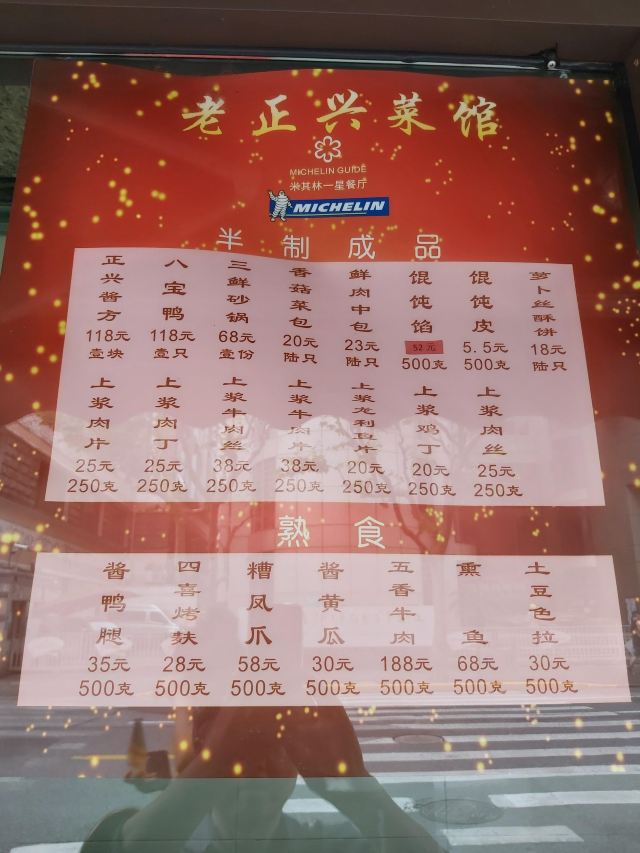 老正兴菜馆
MICHELIN GUIDE
米其林一星餐厅
MICHELIN
半制成品
正兴酱方 118元 壹块
八宝鸭 118元 壹只
三鲜砂锅 68元 壹份
香菇菜包 20元 陆只
鲜肉中包 23元 陆只
馄饨馅 52元 500克
馄饨皮 5.5元 500克
萝卜丝酥饼 18元 陆只
上浆肉片 25元 250克
上浆肉丁 25元 250克
上浆牛肉丝 38元 250克
上浆牛肉片 38元 250克
上浆龙利鱼片 20元 250克
上浆鸡丁 20元 250克
上浆肉丝 25元 250克
熟食
酱鸭腿 35元 500克
四喜烤麸 28元 500克
糟凤爪 58元 500克
酱黄瓜 30元 500克
五香牛肉 188元 500克
熏鱼 68元 500克
土豆色拉 30元 500克